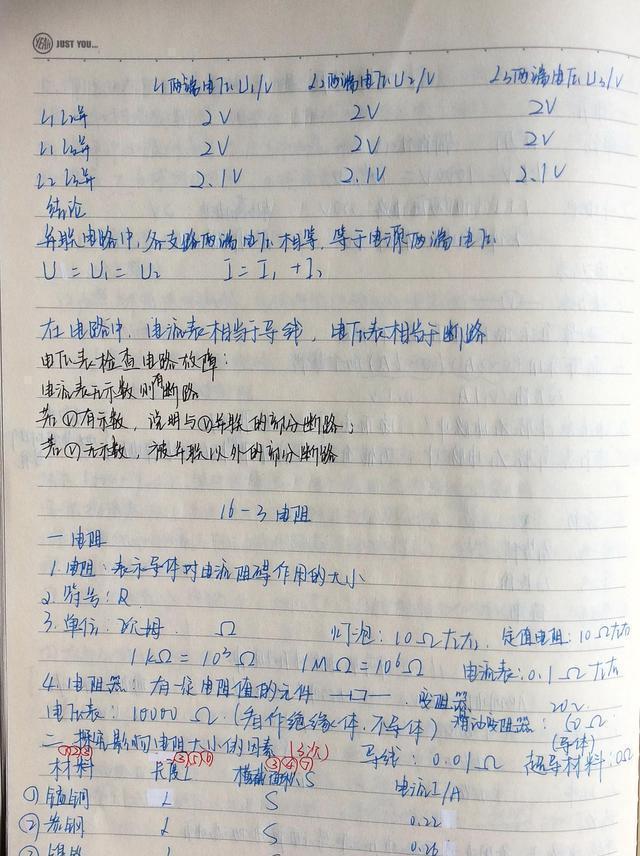 YEAH JUST YOU...
L1两端电压U1/V L2两端电压U2/V L3两端电压U3/V
L1 L2并 2V 2V 2V
L1 L3并 2V 2V 2V
L2 L3并 2.1V 2.1V 2.1V
结论
并联电路中,各支路两端电压相等,等于电源两端电压
U = U1 = U2 I = I1 + I2
在电路中,电流表相当于导线,电压表相当于断路
电压表检查电路故障:
电流表无示数则有断路
若Ⓥ有示数,说明与Ⓥ并联的部分断路;
若Ⓥ无示数,被并联以外的部分断路
16-3电阻
一 电阻
1.电阻:表示导体对电流阻碍作用的大小
2.符号:R
3.单位:欧姆 Ω 灯泡:10Ω左右, 定值电阻:10Ω左右
1kΩ=10³Ω 1MΩ=10⁶Ω 电流表:0.1Ω左右
4.电阻器:有一定电阻值的元件 变阻器 20Ω
电压表:10000Ω.(看作绝缘体,不导体) 滑动变阻器:50Ω
二 探究影响电阻大小的因素 导线:0.01Ω (导体) 超导材料:0Ω
①②③ ③⑤⑥ ③④⑦
材料 长度L 横截面积S 电流I/A
①锰铜 L S 0.22
② L S 0.26